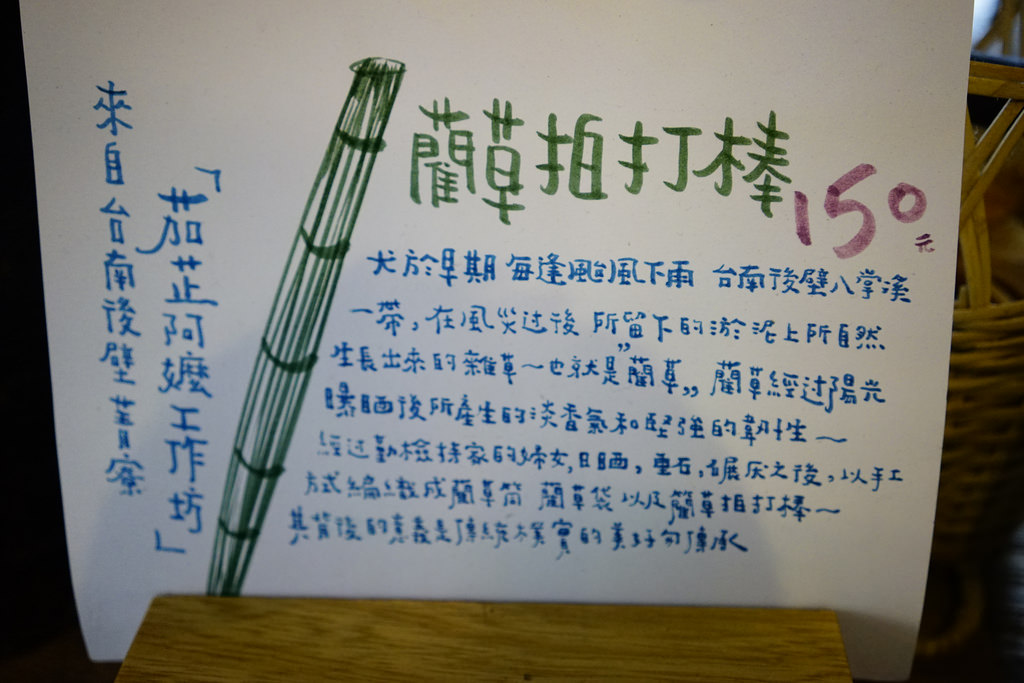 藺草拍打棒
150元
犬於早期 每逢颱風下雨 台南後壁八掌溪
一帶,在風災过後 所留下的淤泥上所自然
生長出來的雜草~也就是"藺草„ 藺草經过陽光
曝晒後所產生的淡香氣和堅強的韌性~
經过勤檢持家的婦女,日晒,垂石,碾灰之後,以手工
方式編織成藺草筒 藺草袋 以及藺草拍打棒~
其背後的意義是傳統樸實的美好勻傳承
來自台南後壁菁寮
「茄芷阿嬤工作坊」